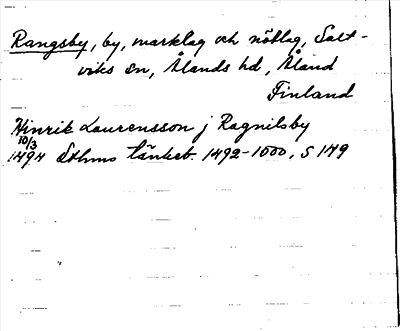 Rangsby, by, marklag och nötlag, Salt-
viks sn, Ålands hd, Åland
Finland
Hinrik Laurensson j Ragnilsby
10/3
1494 Sthms tänkeb. 1492-1500, S 149